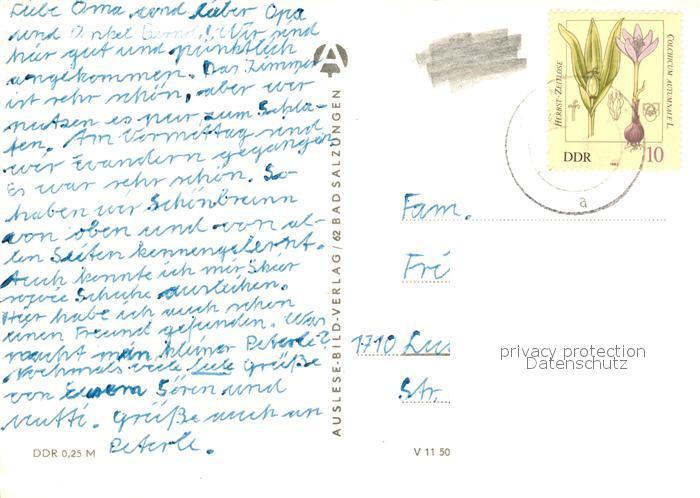 Liebe Oma und lieber Opa
und Onkel Bernd! Wir sind
hier gut und pünktlich
angekommen. Das Zimmer
ist sehr schön, aber wir
nutzen es nur zum Schla-
fen. Am Vormittag sind
wir wandern gegangen
Es war sehr schön. So
haben wir Schönbrunn
von oben und von al-
len Seiten kennengelernt.
Auch konnte ich mir Skier
sowie Schuhe ausleihen.
Hier habe ich auch schon
einen Freund gefunden. Was
macht mein kleiner Peterle?
Nochmals viele liebe Grüße
von eurem Sören und
Mutti. Grüße auch an
Peterle.
DDR 0,25 M
AUSLESE-BILD-VERLAG / 62 BAD SALZUNGEN
A
HERBST-ZEITLOSE
COLCHICUM AUTUMNALE L.
DDR
10
a
Fam.
1710
Str.
privacy protection
Datenschutz
V 11 50